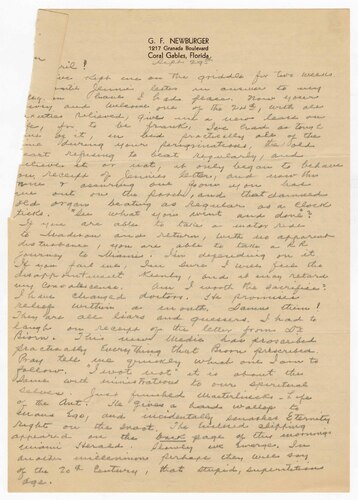 G. F. NEWBURGER
1217 Granada Boulevard
Coral Gables, Florida
Sept 29th
kept me on the griddle for two weeks
Jennie's letter in answer to my
Now yours
and welcome one of the 24th, with all
relieved, gives me a new lease on
to be frank, I've had a tough
of it, in bed practically all of the
during your perigrinations, the old
heart refusing to beat regularly, and
believe it or not, it only began to behave
on receipt of Jennie's letter, and now this
one of assuring one from you has
me out on the porch, and that damned
old organ beating as regular as a clock
ticks. See what you went and done?
If you are able to take a motor ride
to Madison and return, with no apparent
disturbance, you are able to take a RR
journey to Miami. I'm depending on it
If you fail me, I'm sure, I will feel the
disappointment keenly, and it may retard
my convalescence. Am I worth the sacrifice?
I have changed doctors. He promises
relief within a month, Damn them!
They are all liars and guessers. I had to
laugh on receipt of the letter from Dr
Biorn. This new Medic has proscribed
practically everything that Biorn prescribed.
Pray, tell me quickly which one I am to
follow. "I wot not" it is about the
same with ministrations to our spiritual
selves. Just finished Maeterlinck's Life
of the Ant. He gives a hard wallop to
humans Ego, and incidentally smashes Eternity
right on the snoot. The enclosed clipping
appeared on the back page of this mornings
Miami Herald. Slowly we emerge. In
another millennium perhaps they will say
of the 20th Century, that stupid, superstitious
age.